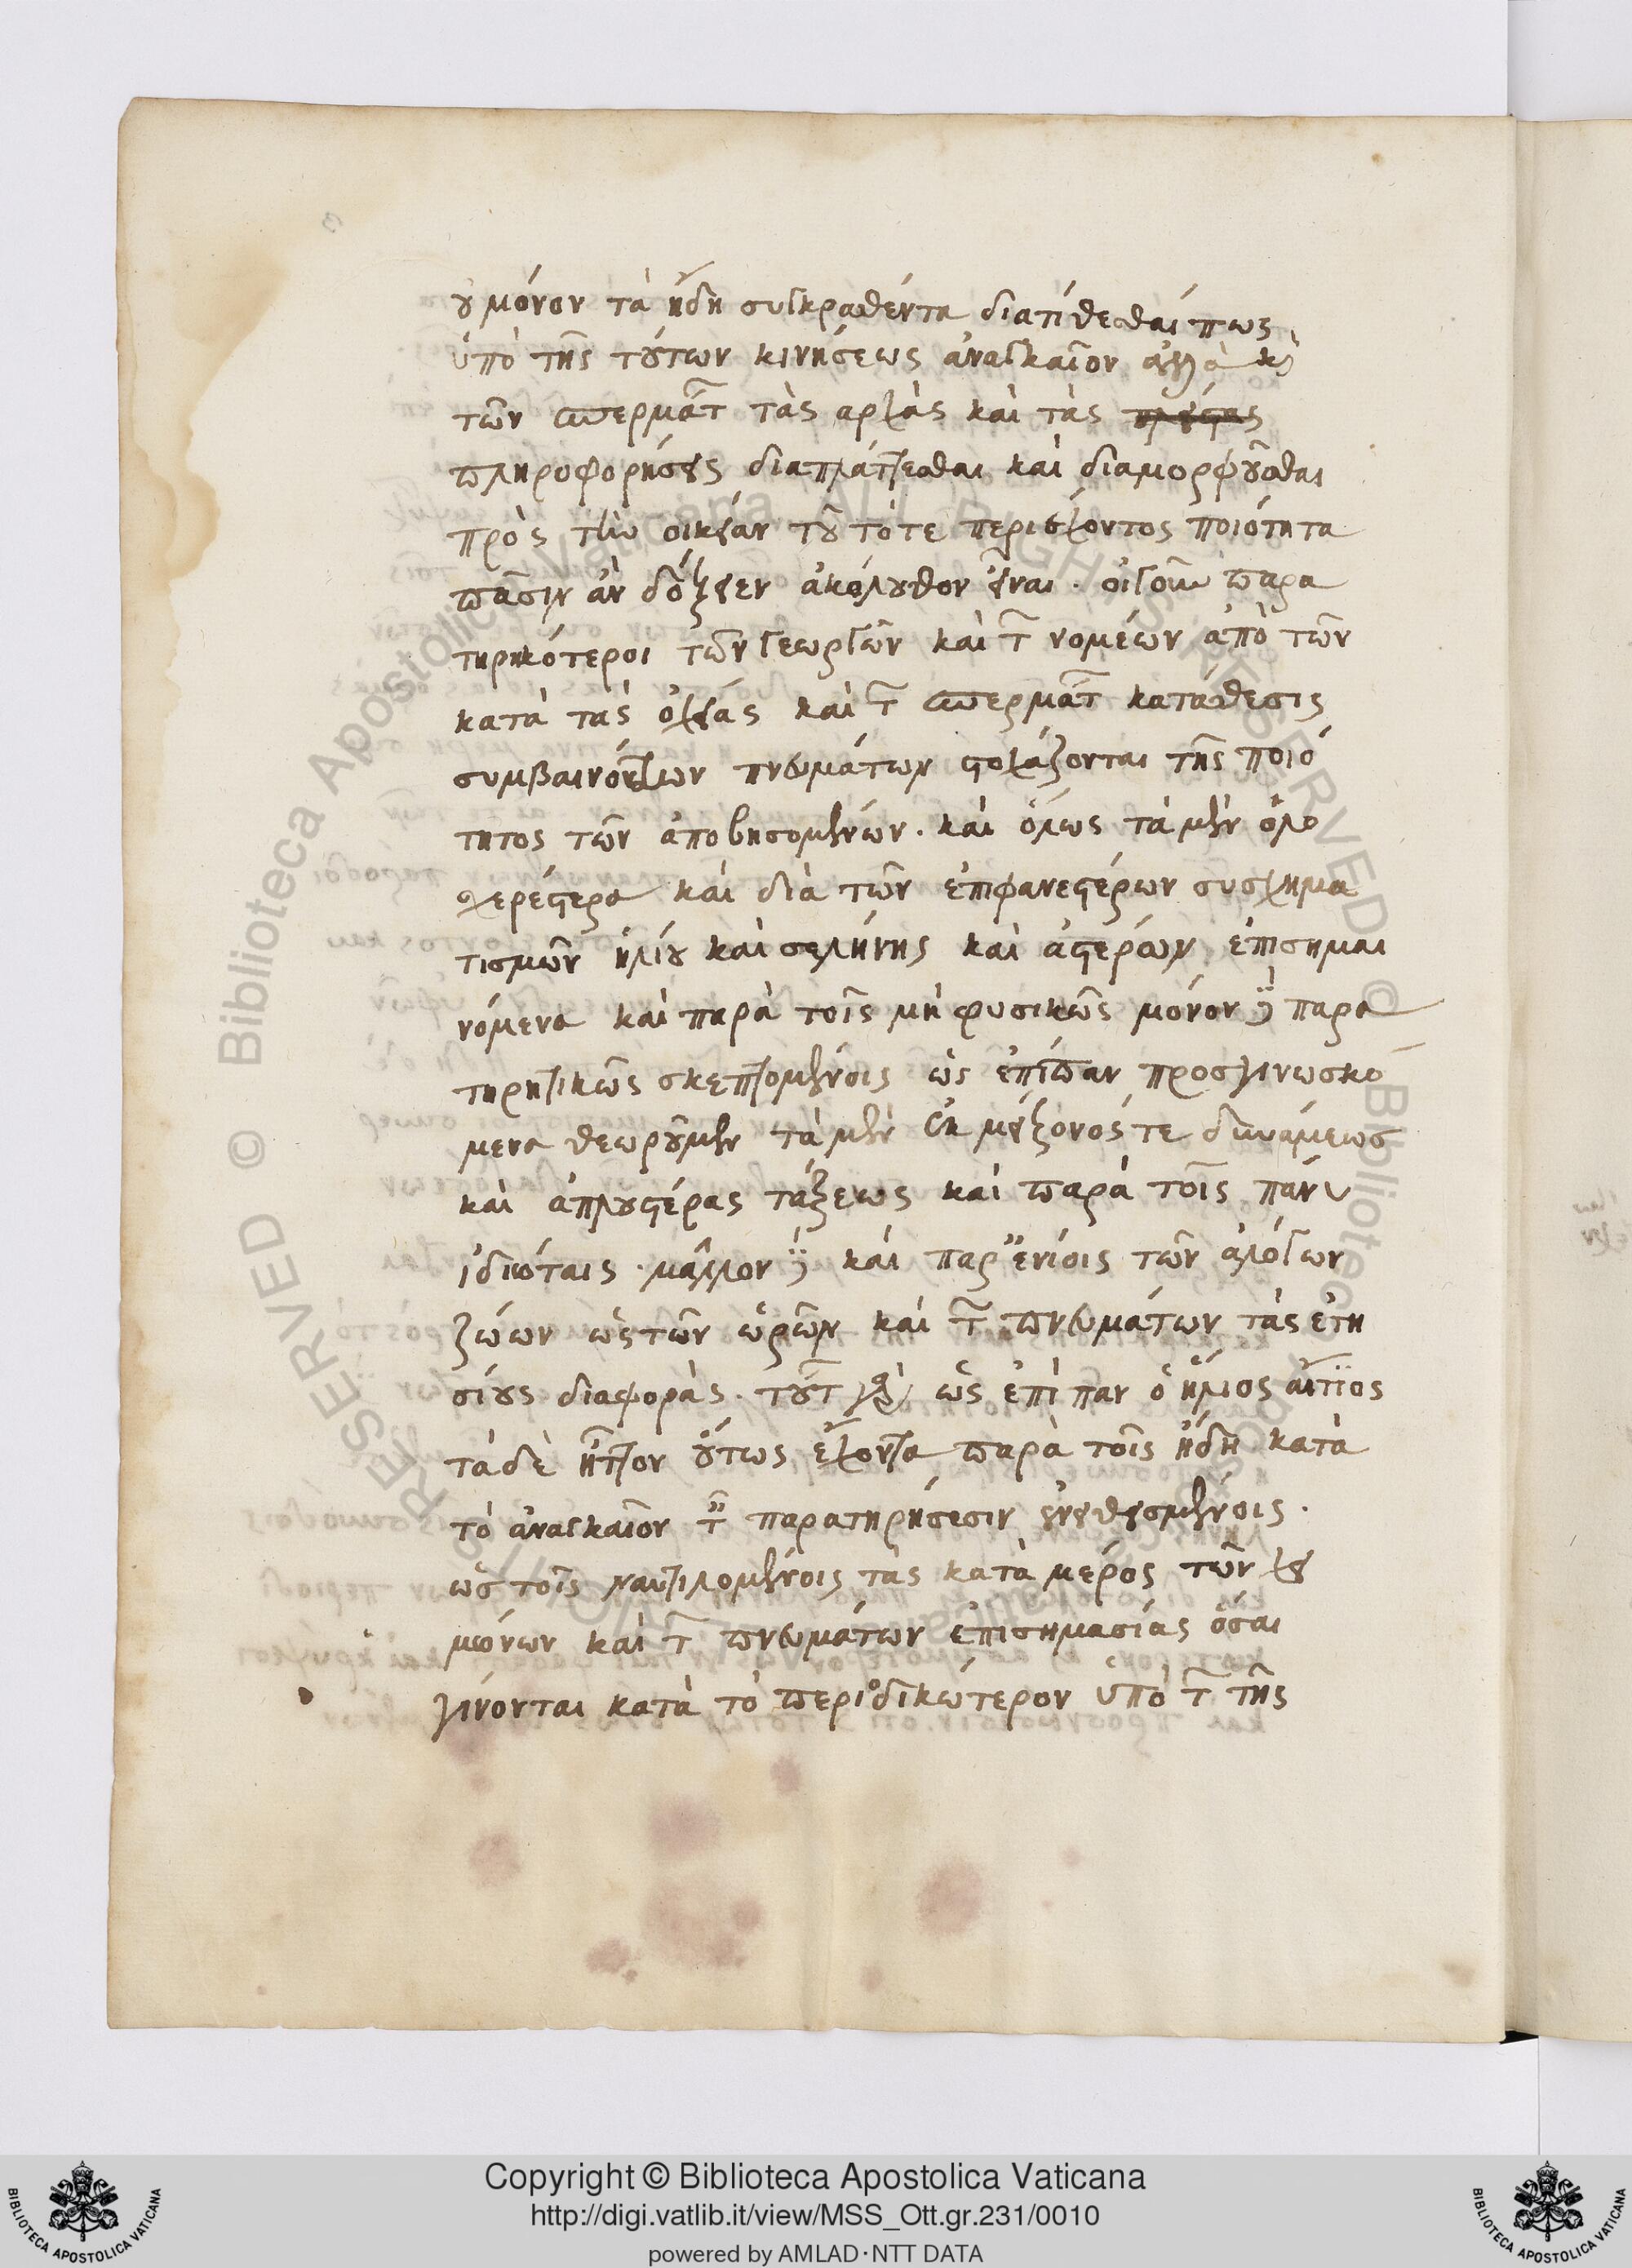 οὐ μόνον τὰ ἤδη συγκραθέντα διατίθεσθαί πως
ὑπὸ τῆς τούτων κινήσεως ἀναγκαῖον ἀλλὰ καὶ
τῶν σπερμάτ τὰς αρχὰς καὶ τὰς
πληροφορήσεις διαπλάττεσθαι καὶ διαμορφοῦσθαι
πρὸς τὴν οικείαν τοῦ τότε περιέχοντος ποιότητα
πᾶσιν ἂν δόξειεν ἀκόλουθον εἶναι · οἱ γοῦν παρα
τηρικότεροι τῶν γεωργῶν καὶ τ νομέων ἀπὸ τῶν
κατὰ τὰς ὀχείας καὶ τ σπερμάτ καταθεσις
συμβαινόντων πνευμάτων στοχάζονται τῆς ποιό
τητος τῶν ἀποβησομένων · καὶ ὅλως τὰ μὲν ὁλο
σχερέστερα καὶ διὰ τῶν ἐπιφανεστέρων συσχημα
τισμῶν ἡλίου καὶ σελήνης καὶ ἀστέρων ἐπισημαι
νόμενα καὶ παρὰ τοῖς μὴ φυσικῶς μόνον δὲ παρα
τηρητικῶς σκεπτομένοις ὡς ἐπίπαν προσγινωσκό
μενα θεωροῦμεν τὰ μὲν ἐκ μείζονός τε δυνάμεως
καὶ ἁπλουστέρας τάξεως καὶ παρὰ τοῖς πάνυ
ἰδιώταις · μᾶλλον δὲ καὶ παρ' ἐνίοις τῶν ἀλόγων
ζώων ὡς τῶν ὡρῶν καὶ τ πνευμάτων τὰς ἐτη
σίους διαφοράς · τούτ γὰρ ὡς ἐπὶ παν ὁ ἥλιος αἴτιος
τὰ δὲ ἧττον οὕτως ἔχοντα παρὰ τοῖς ἤδη κατὰ
τὸ ἀναγκαῖον τ παρατηρήσεσιν ἐνειθισμένοις ·
ὡς τοῖς ναυτιλομένοις τὰς κατὰ μέρος τῶν χει
μώνων καὶ τ πνευμάτων ἐπισημασίας ὅσαι
γίνονται κατὰ τὸ περιοδικώτερον ὑπὸ τ τῆς
Copyright © Biblioteca Apostolica Vaticana
http://digi.vatlib.it/view/MSS_Ott.gr.231/0010
powered by AMLAD·NTT DATA